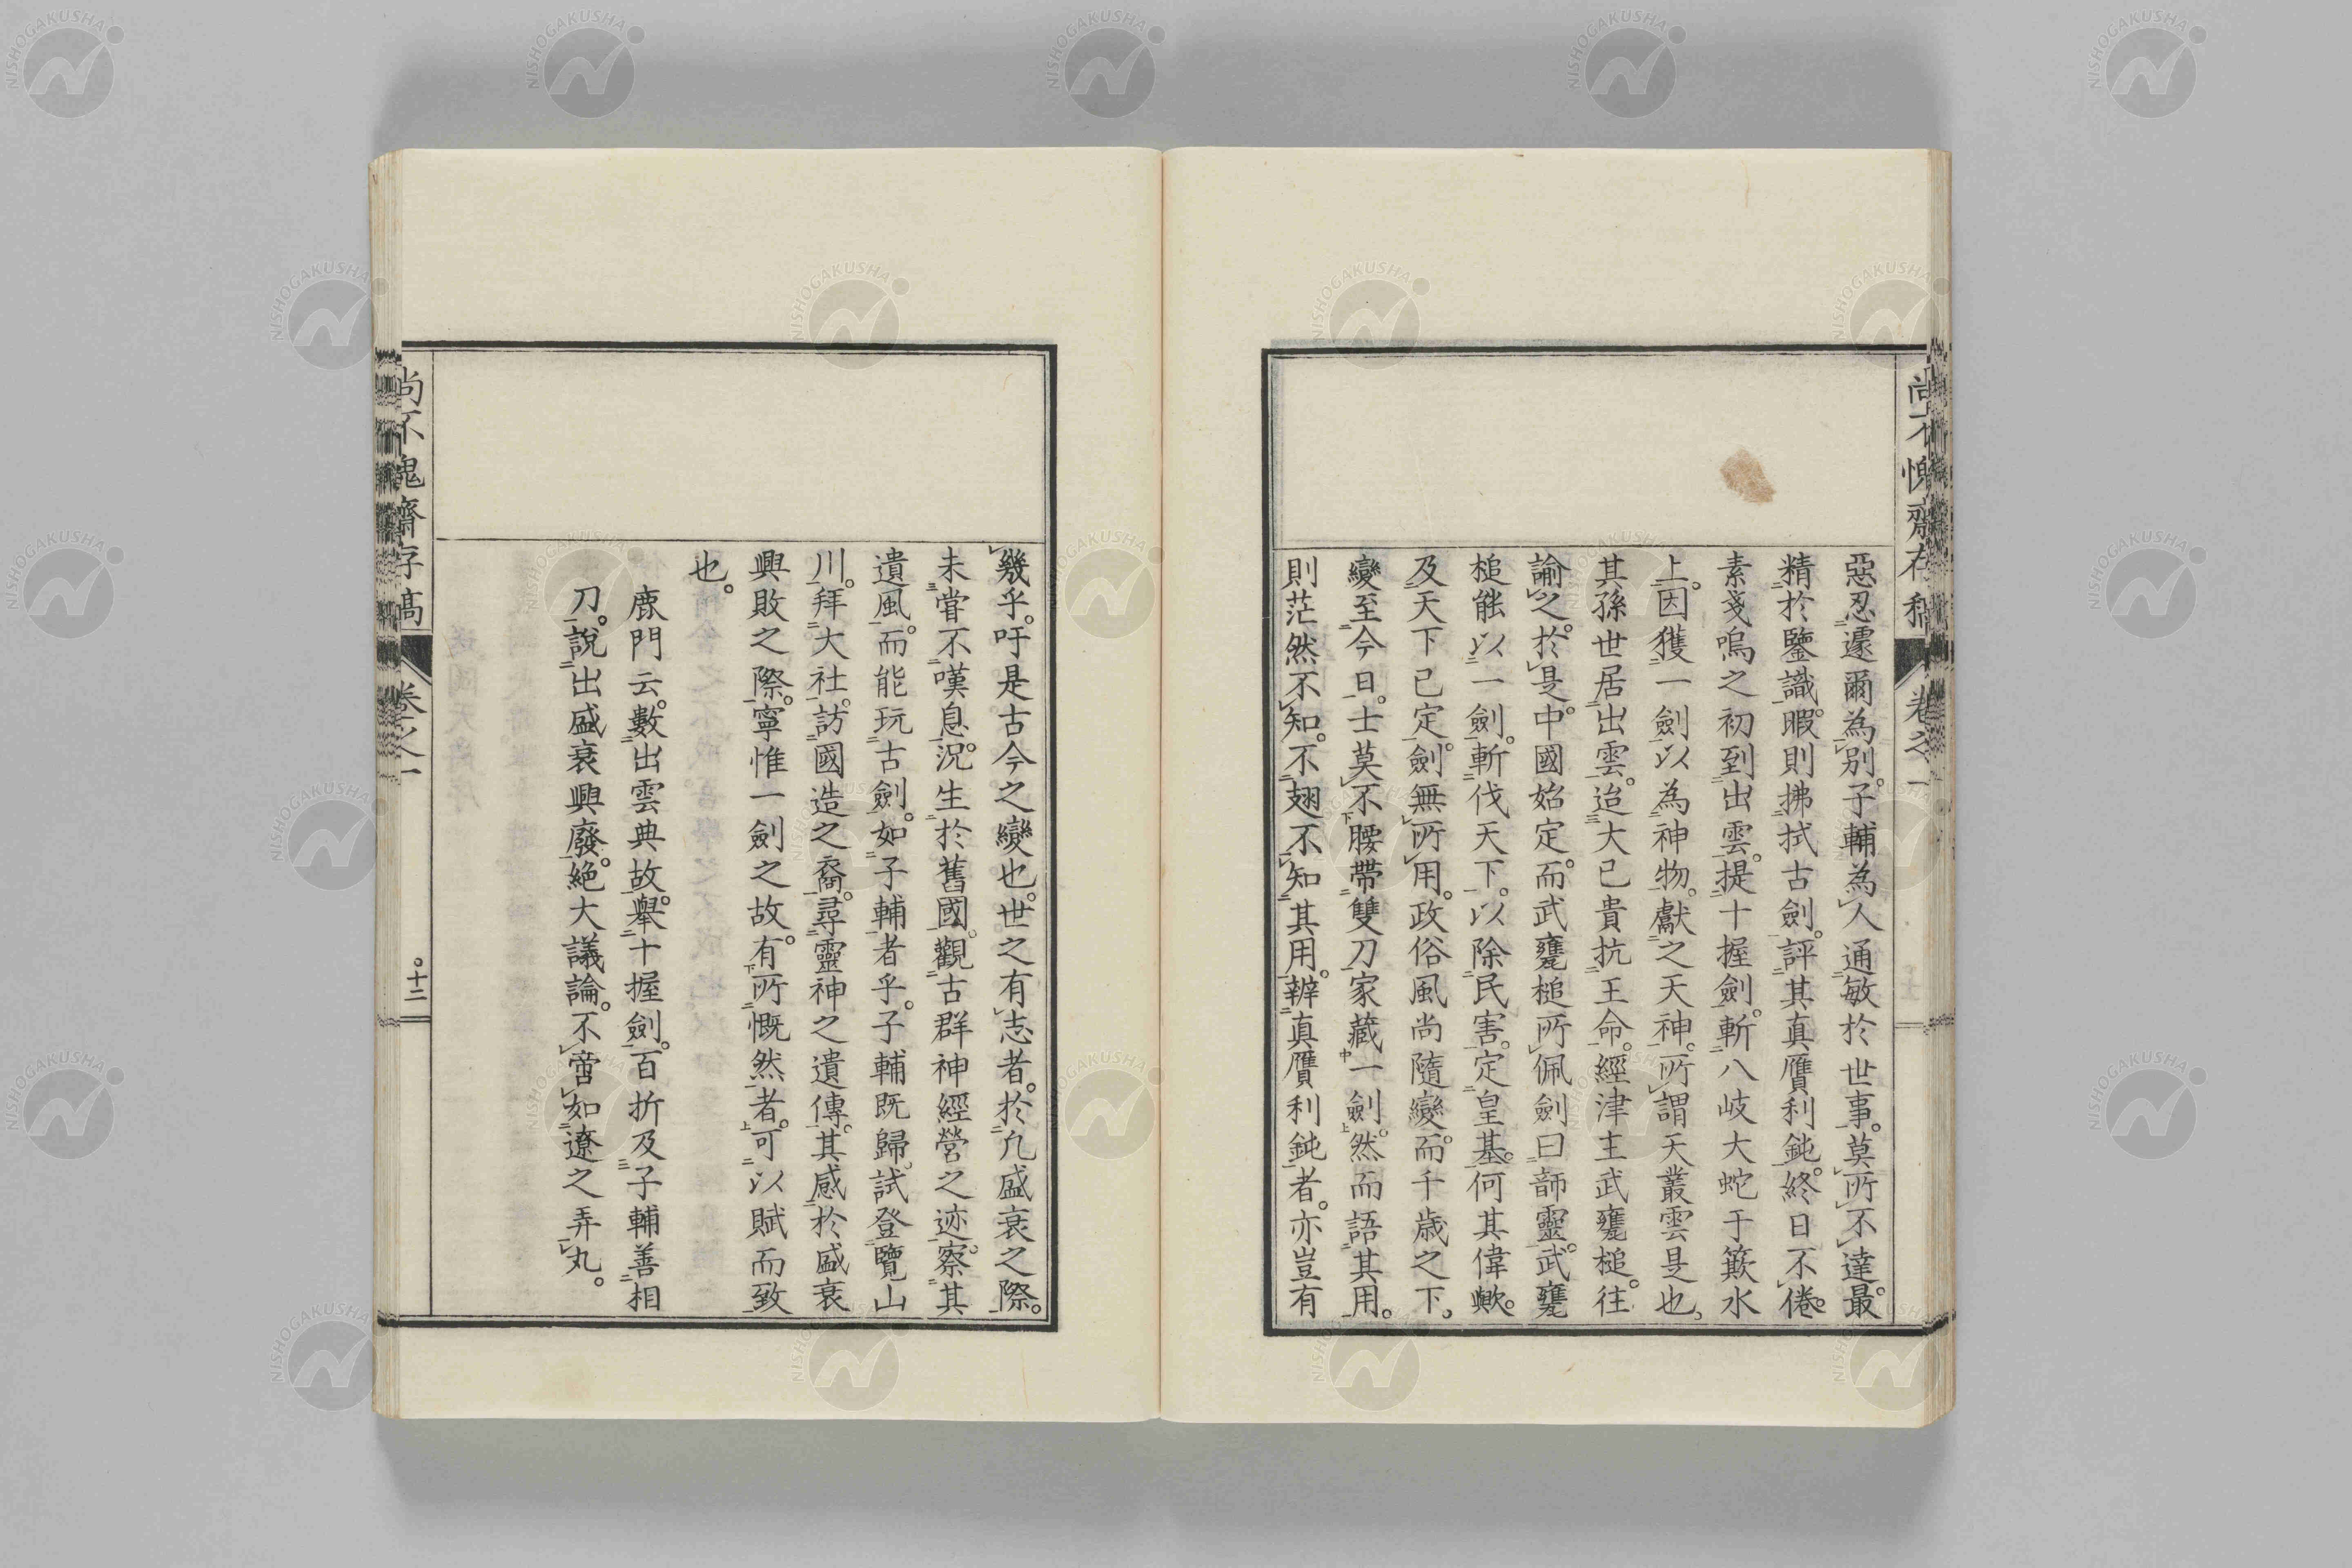 尚不愧齋存稿
卷之一
惡忍遽爾為別。子輔為人通敏於世事。莫所不達。最
精於鑒識。暇則拂拭古劍。評其真贋利鈍。終日不倦。
素戔嗚之初到出雲。提十握劍。斬八岐大蛇于簸水
上。因獲一劍以為神物。獻之天神。所謂天叢雲是也。
其孫世居出雲。迨大已貴抗王命。經津主武甕槌。往
諭之。於是。中國始定。而武甕槌所佩劍曰韴靈。武甕
槌能以一劍。斬伐天下。以除民害。定皇基。何其偉歟。
及天下已定。劍無所用。政俗風尚隨變。而千歲之下。
變至今日。士莫不腰帶雙刀家藏一劍。然而語其用。
則茫然不知。不翅不知其用。辨真贋利鈍者。亦豈有
幾乎。吁是古今之變也。世之有志者。於凢盛衰之際。
未甞不嘆息。況生於舊國。觀古群神經營之迹。察其
遺風。而能玩古劍。如子輔者乎。子輔既歸。試登覽山
川。拜大社。訪國造之裔。尋靈神之遺傳。其感於盛衰
興敗之際。寧惟一劍之故。有所慨然者。可以賦而致
也。
鹿門云。數出雲典故。舉十握劍。百折及子輔善相
刀。說出盛衰興廢。絕大議論。不啻如遼之弄丸。
尚不愧齋存稿
卷之一
十二
NISHOGAKUSHA